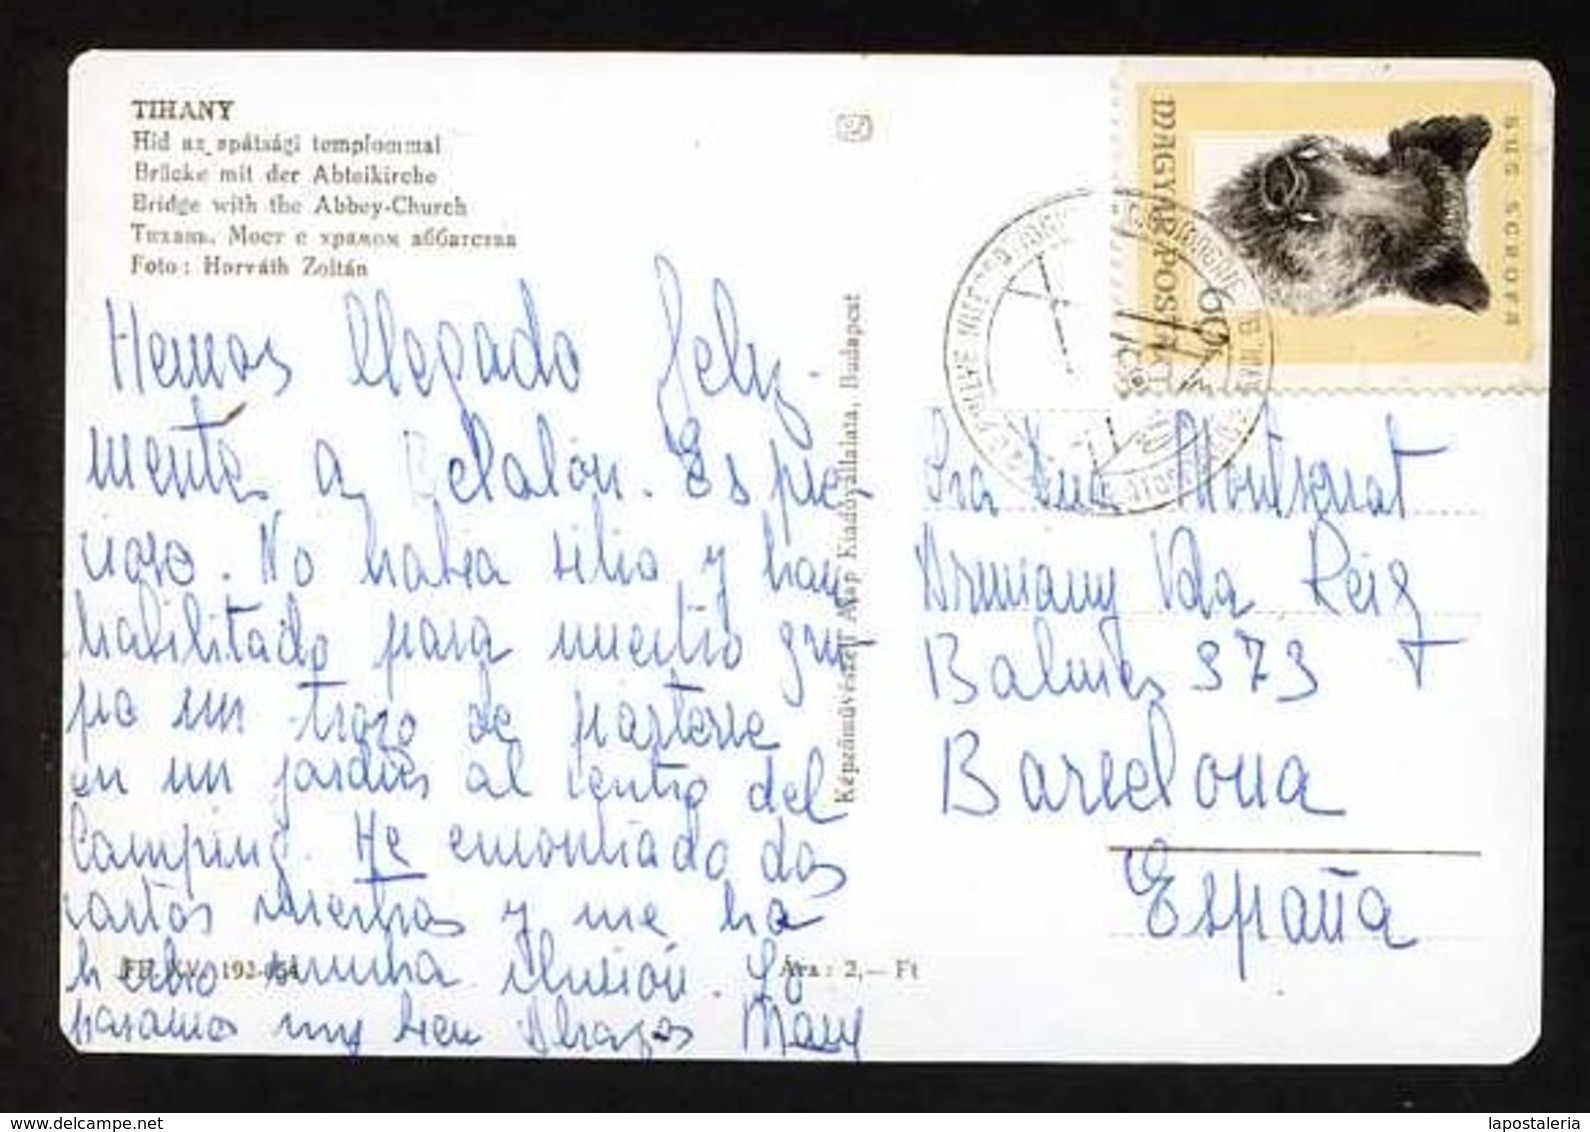 TIHANY
Híd az apátsági templommal
Brücke mit der Abteikirche
Bridge with the Abbey-Church
Тихань. Мост с храмом аббатства
Foto: Horváth Zoltán
Hemos llegado feliz-
mente a Belalon. Es pre-
cioso. No habia sitio y han
habilitado para nuestro gru-
po un trozo de parterre
en un jardin al centro del
Camping. He encontrado dos
cartas vuestras y me ha
hecho mucha ilusión. Lo
pasamos muy bien Abrazos Mary
Képzőművészeti Alap Kiadóvállalata, Budapest
Ára: 2,— Ft
MAGYAR POSTA
60
SUS SCROFA
Sra Montserrat
Armany Vda Reig
Balmes 373
Barcelona
España
lapostaleria